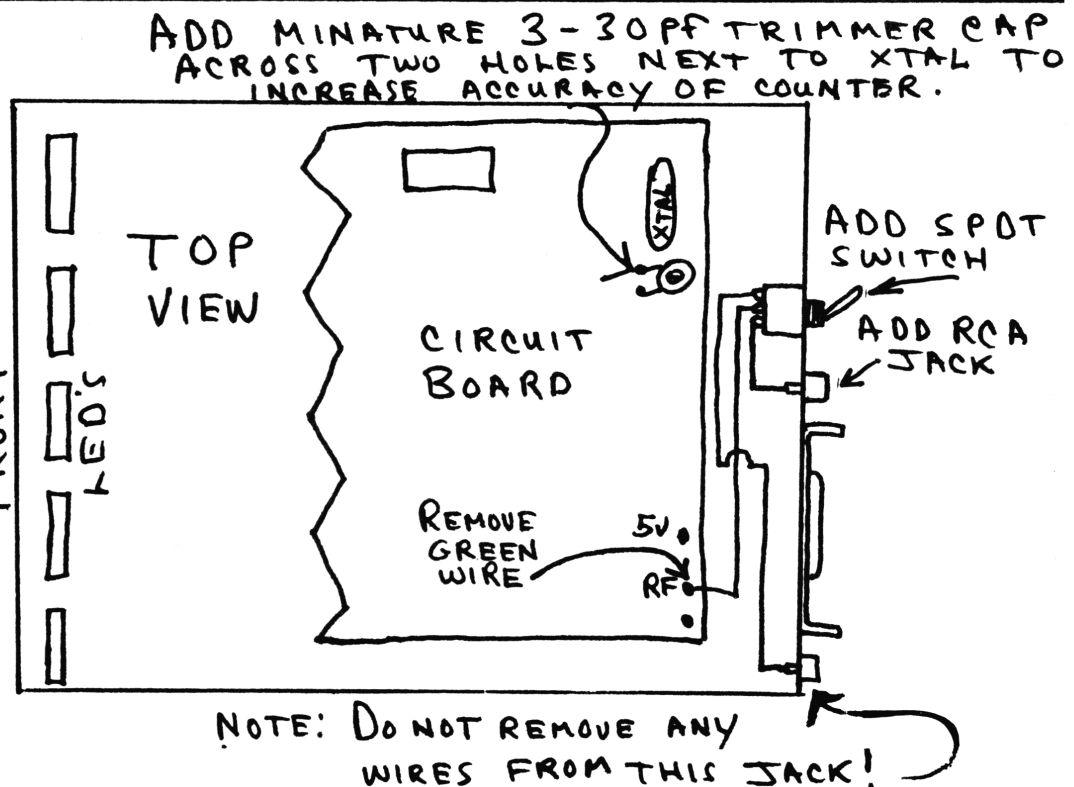 ADD MINATURE 3-30PF TRIMMER CAP
ACROSS TWO HOLES NEXT TO XTAL TO
INCREASE ACCURACY OF COUNTER.
XTAL
TOP
VIEW
ADD SPDT
SWITCH
CIRCUIT
BOARD
ADD RCA
JACK
LEDS
REMOVE
GREEN
WIRE
5V
RF
NOTE: DO NOT REMOVE ANY
WIRES FROM THIS JACK!